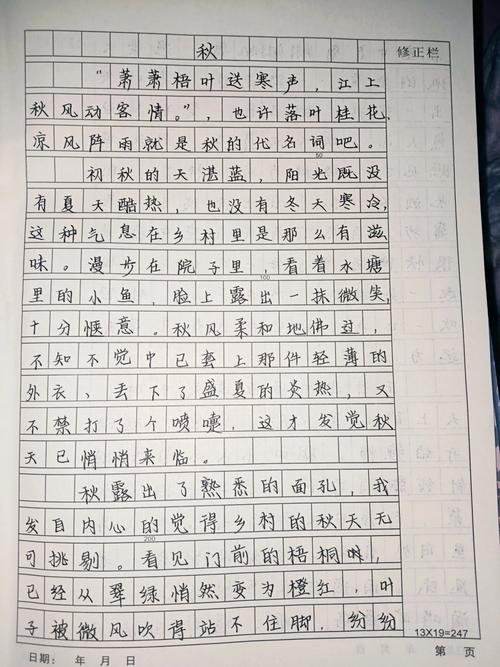 秋
修正栏
“萧萧梧叶送寒声,江上
秋风动客情。”,也许落叶桂花,
凉风阵雨就是秋的代名词吧。
50
初秋的天湛蓝,阳光既没
有夏天酷热,也没有冬天寒冷,
这种气息在乡村里是那么有滋
味。漫步在院子里,看着水塘
100
里的小鱼,脸上露出一抹微笑,
十分惬意。秋风柔和地佛过,
不知不觉中已套上那件轻薄的
外衣、丢下了盛夏的炎热,又
不禁打了个喷嚏,这才发觉秋
天已悄悄来临。
秋露出了熟悉的面孔,我
发自内心的觉得乡村的秋天无
200
可挑剔。看见门前的梧桐树,
已经从翠绿悄然变为橙红,叶
子被微风吹得站不住脚,纷纷
13X19=247
日期: 年 月 日
第 页